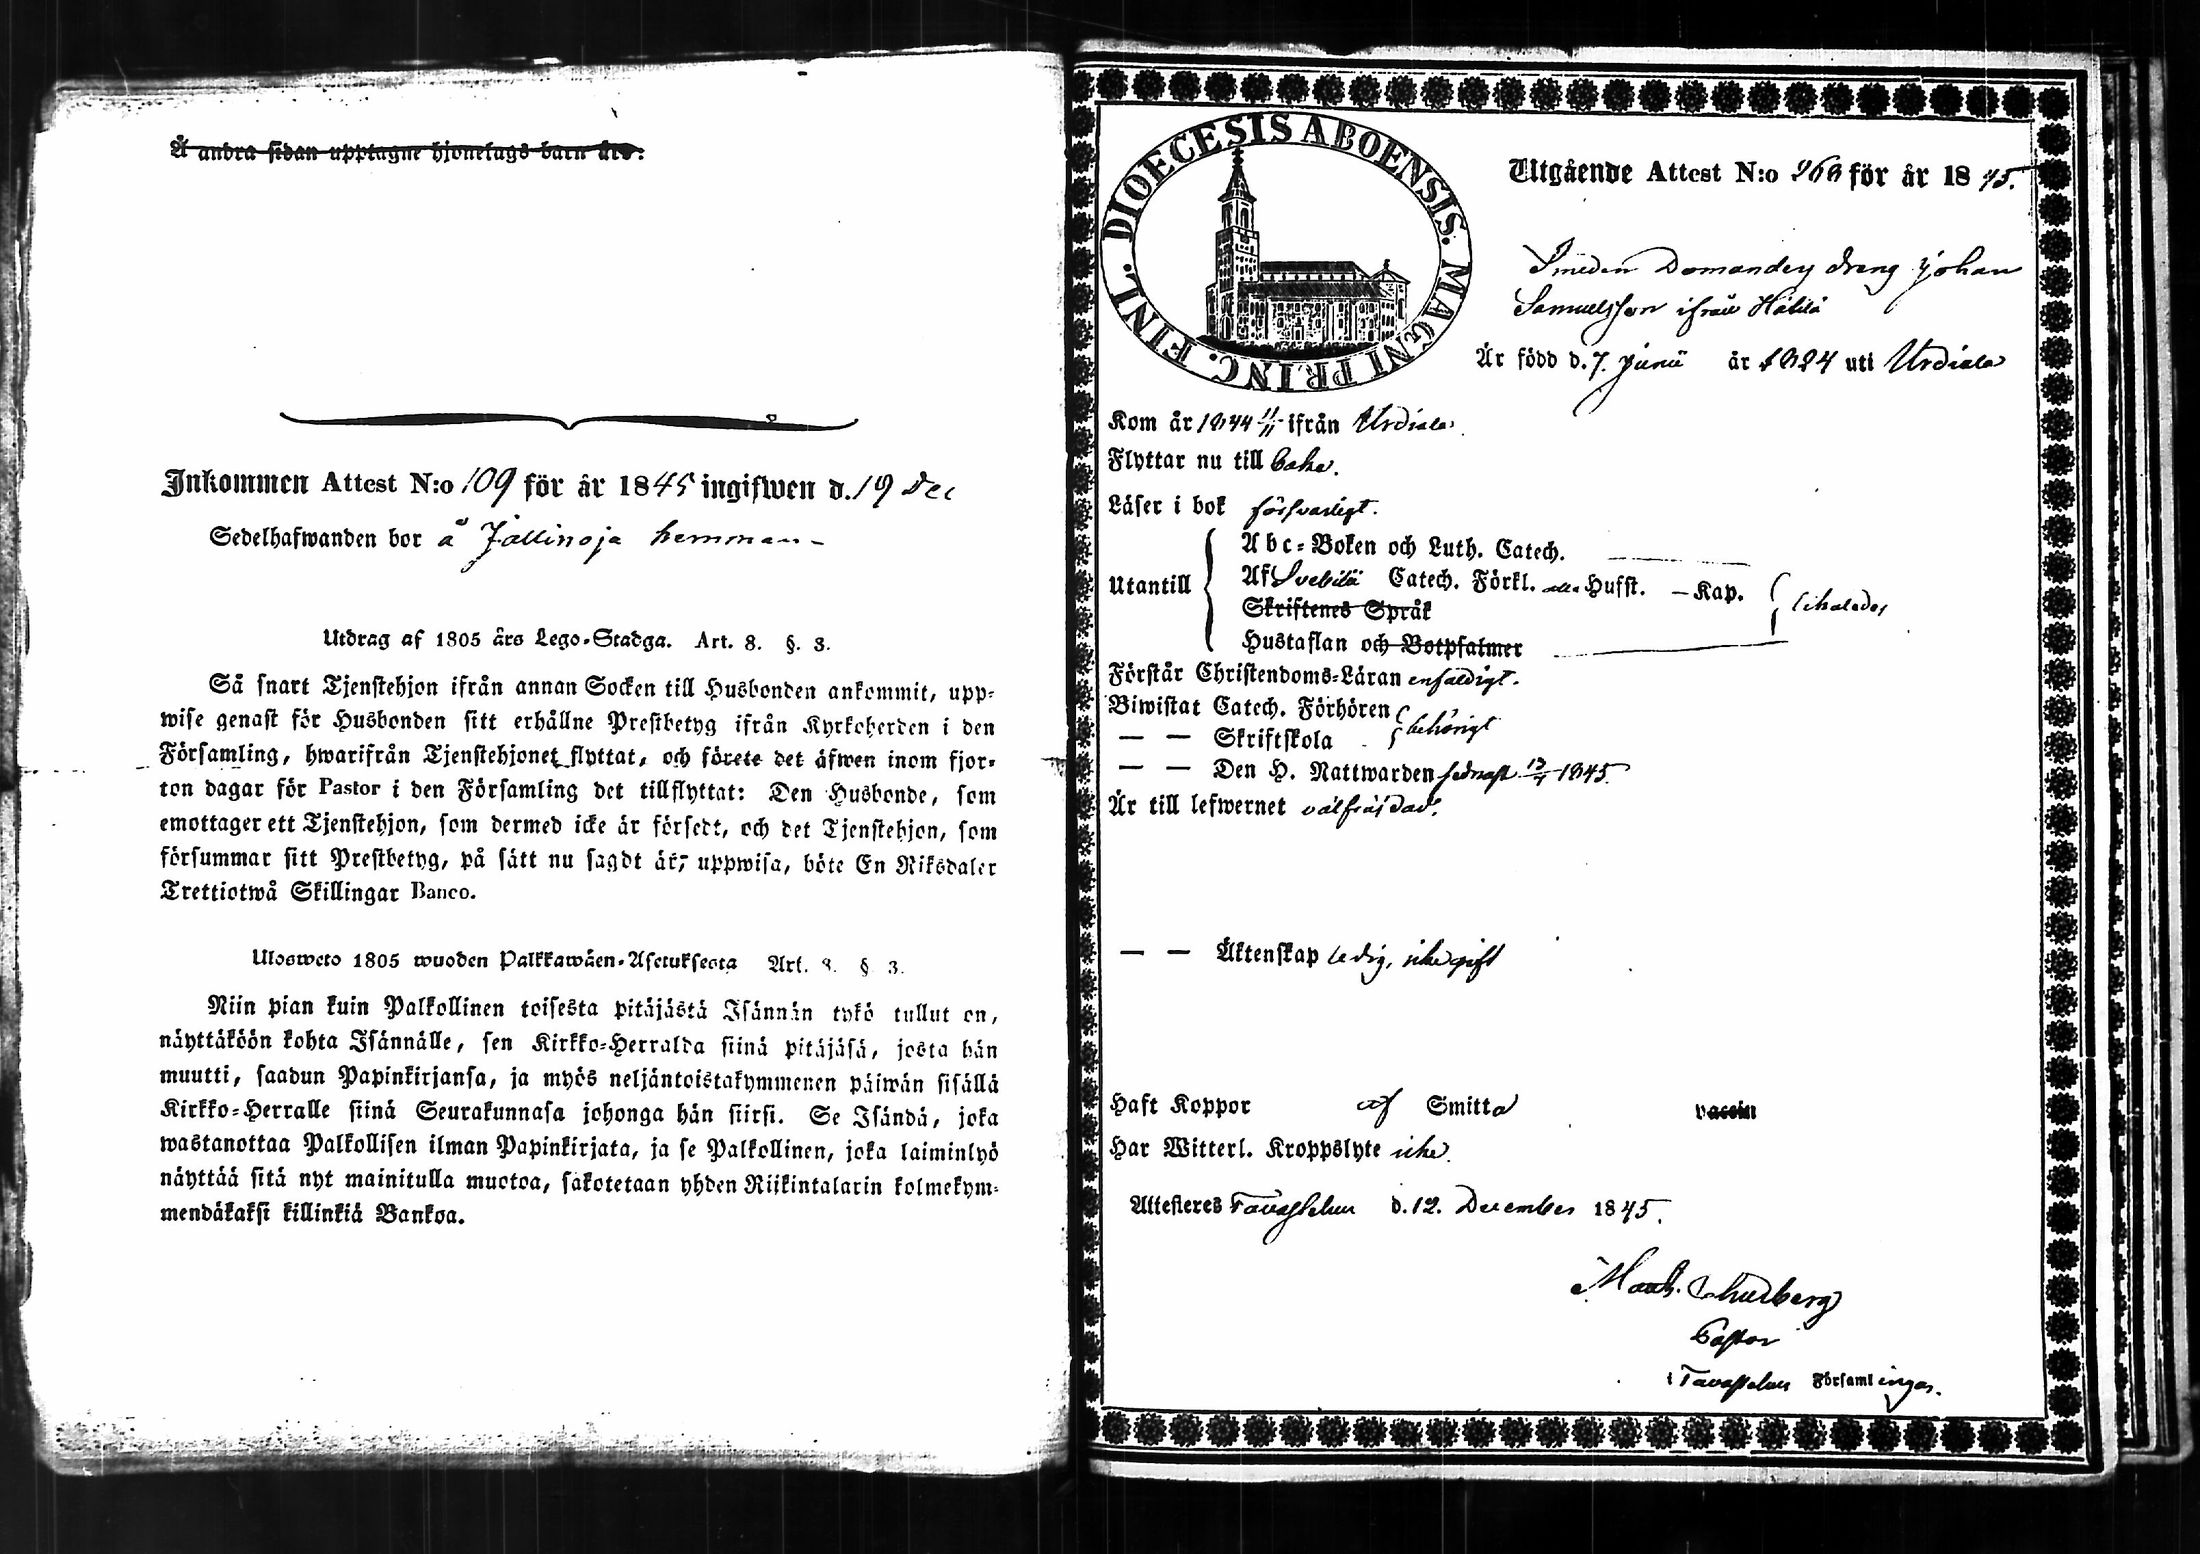 Å andra sidan upptagne hjonelags barn äro:
Inkommen Attest N:o 109 för år 1845 ingifwen d. 19 Dec
Sedelhafwanden bor å Jällinoja hemman –
Utdrag af 1805 års Lego-Stadga. Art. 8. §. 3.
Så snart Tjenstehjon ifrån annan Socken till Husbonden ankommit, upp-
wise genast för Husbonden sitt erhållne Prestbetyg ifrån Kyrkoherden i den
Församling, hwarifrån Tjenstehjonet flyttat, och förete det äfwen inom fjor-
ton dagar för Pastor i den Församling det tillflyttat: Den Husbonde, som
emottager ett Tjenstehjon, som dermed icke är försedt, och det Tjenstehjon, som
försummar sitt Prestbetyg, på sätt nu sagdt är, uppwisa, böte En Riksdaler
Trettiotwå Skillingar Banco.
Ulosweto 1805 wuoden Palkkawäen-Asetuksesta Art. 8. § 3.
Niin pian kuin Palkollinen toisesta pitäjästä Isännän tykö tullut on,
näyttäköön kohta Isännälle, sen Kirkko-Herralda siinä pitäjäsä, josta hän
muutti, saadun Papinkirjansa, ja myös neljäntoistakymmenen päiwän sisällä
Kirkko-Herralle siinä Seurakunnasa johonga hän siirsi. Se Isändä, joka
wastanottaa Palkollisen ilman Papinkirjata, ja se Palkollinen, joka laiminlyö
näyttää sitä nyt mainitulla muotoa, sakotetaan yhden Riikintalarin kolmekym-
mendäkaksi killinkiä Bankoa.
FINL. DIOECESIS ABOENSIS. MAGNI PRINC.
Utgående Attest N:o för år 1845.
Smeden dreng Johan
Samuelsson ifrån
Är född d. 7. Junii år 1824 uti Urdiala
Kom år 1844 11/11 ifrån Urdiala
Flyttar nu till
Läser i bok försvarligt.
Utantill
Abc-Boken och Luth. Catech.
Af Svebilii Catech. Förkl. alla Hufst. – Kap.
Skriftenes Språk
Hustaflan och Botpsalmer
Förstår Christendoms-Läran enfaldigt.
Biwistat Catech. Förhören
behörigt
— — Skriftskola
— — Den H. Nattwarden sednast 1845.
Är till lefwernet välfräjdad.
— — Äktenskap ledig, icke gift
Haft Koppor af Smitta vaccin
Har Witterl. Kroppslyte icke
Attesteres Tavastehus d. 12. December 1845.
Pastor
i Tavastehus Församlingar.